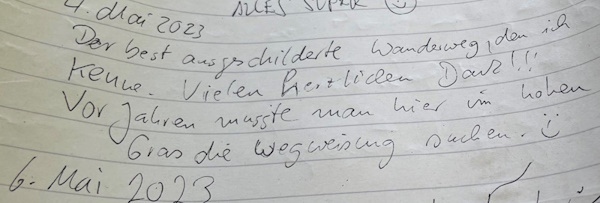 ALLES SUPER ☺
4. Mai 2023
Der best ausgeschilderte Wanderweg, den ich
kenne. Vielen herzlichen Dank!!!
Vor Jahren musste man hier im hohen
Gras die Wegweisung suchen. ☺
6. Mai 2023